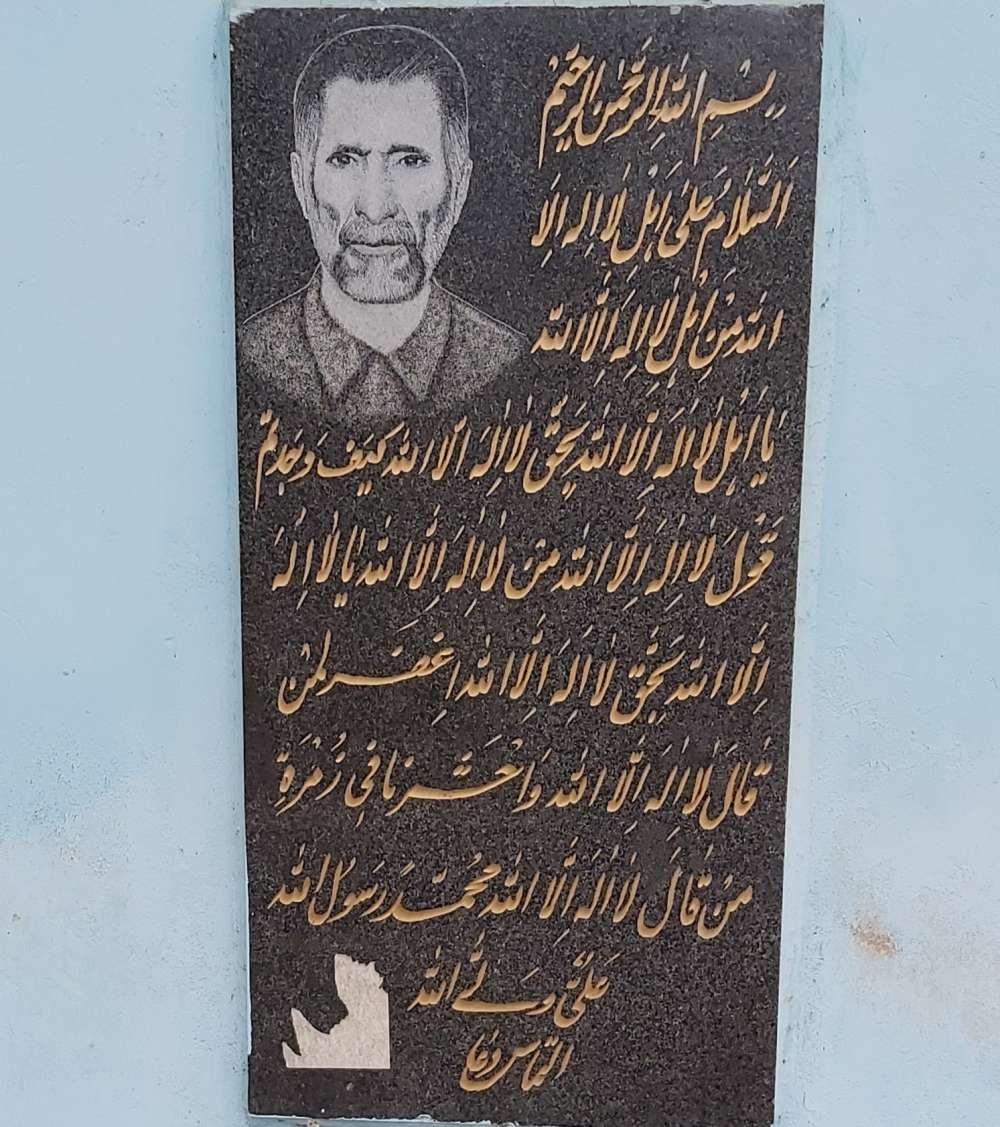 بِسْمِ اللهِ الرَّحْمٰنِ الرَّحیٖمْ
اَلسَّلامُ عَلیٰ اَهْلِ لا اِلهَ اِلاَّ
اللهِ مِنْ اَهْلِ لا اِلهَ اِلاَّ الله
یا اَهْلَ لا اِلهَ اِلاَّ اللهِ بِحَقِّ لا اِلهَ اِلاَّ اللهِ کَیفَ وَجَدتُم
قَوْلَ لا اِلهَ اِلاَّ الله مِن لا اِلهَ اِلاَّ الله یا لا اِلهَ
اِلاَّ الله بِحَقِّ لا اِلهَ اِلاَّ الله اِغفِر لِمَنْ
قالَ لا اِلهَ اِلاَّ الله وَاحْشَرنا فی زُمْرَةِ
مَنْ قالَ لا اِلهَ اِلاَّ الله مُحَمَّد رَسوُلُ الله
عَلیٌّ وَلیُّ الله
التماس دعا